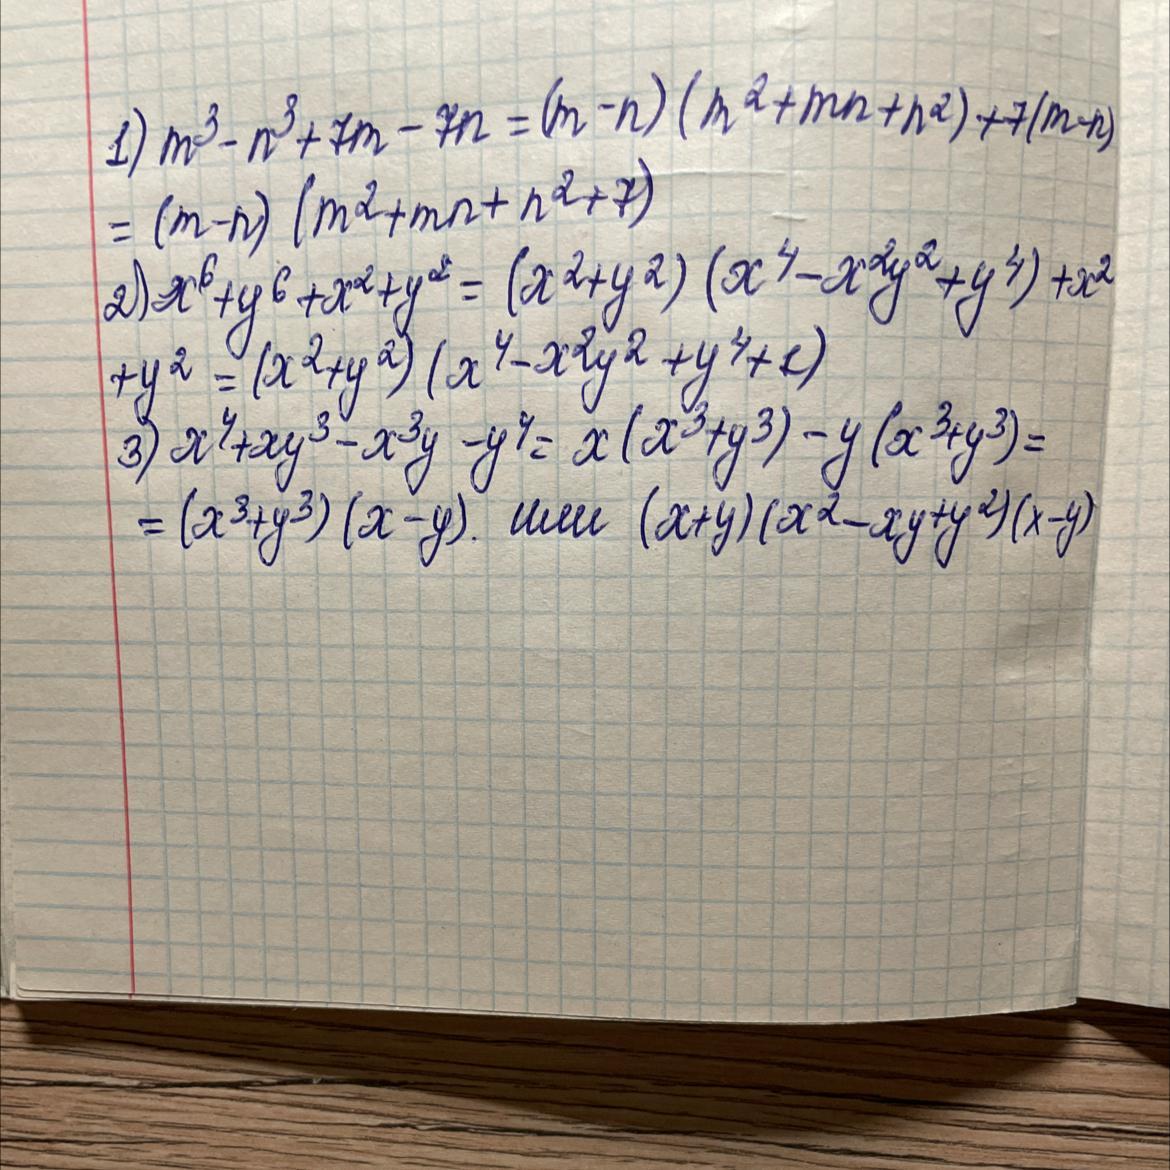 1) m³ - n³ + 7m - 7n = (m - n) (m² + mn + n²) + 7(m - n)
= (m - n) (m² + mn + n² + 7)
2) x⁶ + y⁶ + x² + y² = (x² + y²) (x⁴ - x²y² + y⁴) + x²
+ y² = (x² + y²) (x⁴ - x²y² + y⁴ + 1)
3) x⁴ + xy³ - x³y - y⁴ = x (x³ + y³) - y (x³ + y³) =
= (x³ + y³) (x - y). или (x + y) (x² - xy + y²) (x - y)